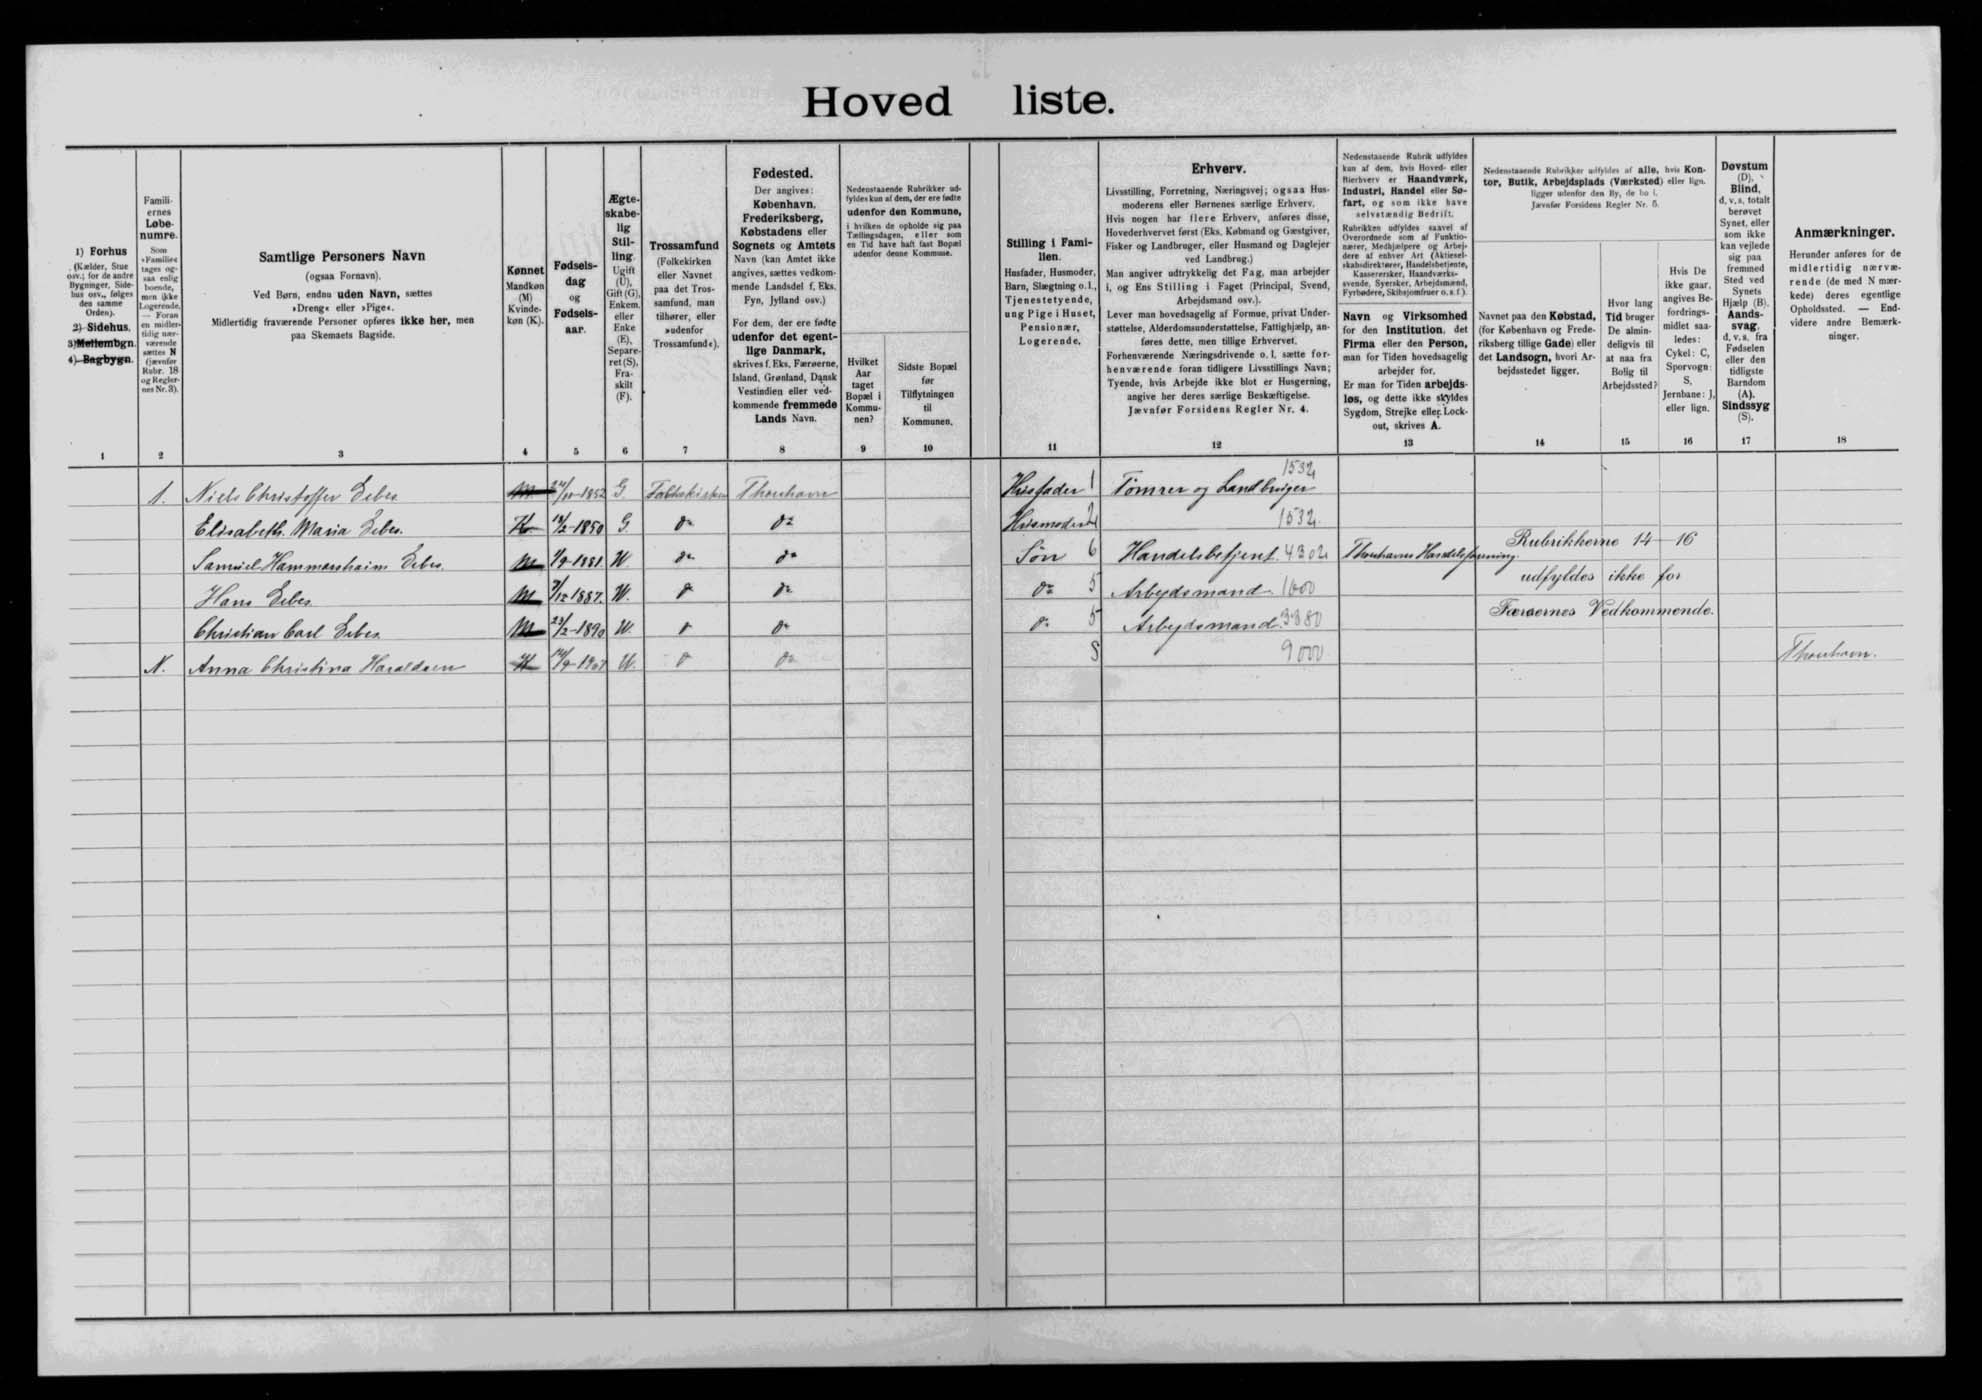 Hoved liste.
1) Forhus
(Kælder, Stue
osv.; for de andre
Bygninger, Side-
hus osv., følges
den samme
Orden).
2) Sidehus.
3) Mellembgn.
4) Bagbygn.
1
Famili-
ernes
Løbe-
numre.
Som
»Familie«
tages og-
saa enlig
boende,
men ikke
Logerende.
— Foran
en midler-
tidig nær-
værende
sættes N
(jævnfør
Rubr. 18
og Regler-
nes Nr. 3).
2
Samtlige Personers Navn
(ogsaa Fornavn).
Ved Børn, endnu uden Navn, sættes
»Dreng« eller »Pige«.
Midlertidig fraværende Personer opføres ikke her, men
paa Skemaets Bagside.
3
Kønnet
Mandkøn
(M)
Kvinde-
køn (K).
4
Fødsels-
dag
og
Fødsels-
aar.
5
Ægte-
skabe-
lig
Stil-
ling.
Ugift
(U),
Gift (G),
Enkem.
eller
Enke
(E),
Separe-
ret (S),
Fra-
skilt
(F).
6
Trossamfund
(Folkekirken
eller Navnet
paa det Tros-
samfund, man
tilhører, eller
»udenfor
Trossamfund«).
7
Fødested.
Der angives:
København,
Frederiksberg,
Købstadens eller
Sognets og Amtets
Navn (kan Amtet ikke
angives, sættes vedkom-
mende Landsdel f. Eks.
Fyn, Jylland osv.)
For dem, der ere fødte
udenfor det egent-
lige Danmark,
skrives f. Eks. Færøerne,
Island, Grønland, Dansk
Vestindien eller ved-
kommende fremmede
Lands Navn.
8
Nedenstaaende Rubrikker ud-
fyldes kun af dem, der ere fødte
udenfor den Kommune,
i hvilken de opholde sig paa
Tællingsdagen, eller som
en Tid have haft fast Bopæl
udenfor denne Kommune.
Hvilket
Aar
taget
Bopæl i
Kommu-
nen?
9
Sidste Bopæl
før
Tilflytningen
til
Kommunen.
10
Stilling i Fami-
lien.
Husfader, Husmoder,
Barn, Slægtning o. l.,
Tjenestetyende,
ung Pige i Huset,
Pensionær,
Logerende.
11
Erhverv.
Livsstilling, Forretning, Næringsvej; ogsaa Hus-
moderens eller Børnenes særlige Erhverv.
Hvis nogen har flere Erhverv, anføres disse,
Hovederhvervet først (Eks. Købmand og Gæstgiver,
Fisker og Landbruger, eller Husmand og Daglejer
ved Landbrug.)
Man angiver udtrykkelig det Fag, man arbejder
i, og Ens Stilling i Faget (Principal, Svend,
Arbejdsmand osv.).
Lever man hovedsagelig af Formue, privat Under-
støttelse, Alderdomsunderstøttelse, Fattighjælp, an-
føres dette, men tillige Erhvervet.
Forhenværende Næringsdrivende o. l. sætte for-
henværende foran tidligere Livsstillings Navn;
Tyende, hvis Arbejde ikke blot er Husgerning,
angive her deres særlige Beskæftigelse.
Jævnfør Forsidens Regler Nr. 4.
12
Nedenstaaende Rubrik udfyldes
kun af dem, hvis Hoved- eller
Bierhverv er Haandværk,
Industri, Handel eller Sø-
fart, og som ikke have
selvstændig Bedrift.
Rubrikken udfyldes saavel af
Overordnede som af Funktio-
nærer, Medhjælpere og Arbej-
dere af enhver Art (Aktiesel-
skabsdirektører, Handelsbetjente,
Kasserersker, Haandværks-
svende, Syersker, Arbejdsmænd,
Fyrbødere, Skibsjomfruer o. s. f.).
Navn og Virksomhed
for den Institution, det
Firma eller den Person,
man for Tiden hovedsagelig
arbejder for.
Er man for Tiden arbejds-
løs, og dette ikke skyldes
Sygdom, Strejke eller Lock-
out, skrives A.
13
Nedenstaaende Rubrikker udfyldes af alle, hvis Kon-
tor, Butik, Arbejdsplads (Værksted) eller lign.
ligger udenfor den By, de bo i.
Jævnfør Forsidens Regler Nr. 5.
Navnet paa den Købstad,
(for København og Frede-
riksberg tillige Gade) eller
det Landsogn, hvori Ar-
bejdsstedet ligger.
14
Hvor lang
Tid bruger
De almin-
deligvis til
at naa fra
Bolig til
Arbejdssted?
15
Hvis De
ikke gaar,
angives Be-
fordrings-
midlet saa-
ledes:
Cykel: C,
Sporvogn:
S,
Jernbane: J,
eller lign.
16
Døvstum
(D),
Blind,
d. v. s. totalt
berøvet
Synet, eller
som ikke
kan vejlede
sig paa
fremmed
Sted ved
Synets
Hjælp (B).
Aands-
svag,
d. v. s. fra
Fødselen
eller den
tidligste
Barndom
(A).
Sindssyg
(S).
17
Anmærkninger.
Herunder anføres for de
midlertidig nærvæ-
rende (de med N mær-
kede) deres egentlige
Opholdssted. — End-
videre andre Bemærk-
ninger.
18
1. Niels Christoffer Debes M 1852 G. Folkekirken Thorshavn Husfader 1 Tømrer og Landbruger 1532
Elisabeth Maria Debes. K 1850 G. do do Husmoder 2 1532
Samuel Hammershaim Debes. M 1/9-1881. U. do do Søn 6 Handelsbetjent. 4302 Thorshavns Handelsforening.
Hans Debes M 7/12-1887. U. do do do 5 Arbejdsmand 1600
Christian Carl Debes M 23/2-1890 U. do do do 5 Arbejdsmand 3380
N. Anna Christina Haraldsen K U. do do 8 9000 Thorshavn.
Rubrikkerne 14–16
udfyldes ikke for
Færøernes Vedkommende.